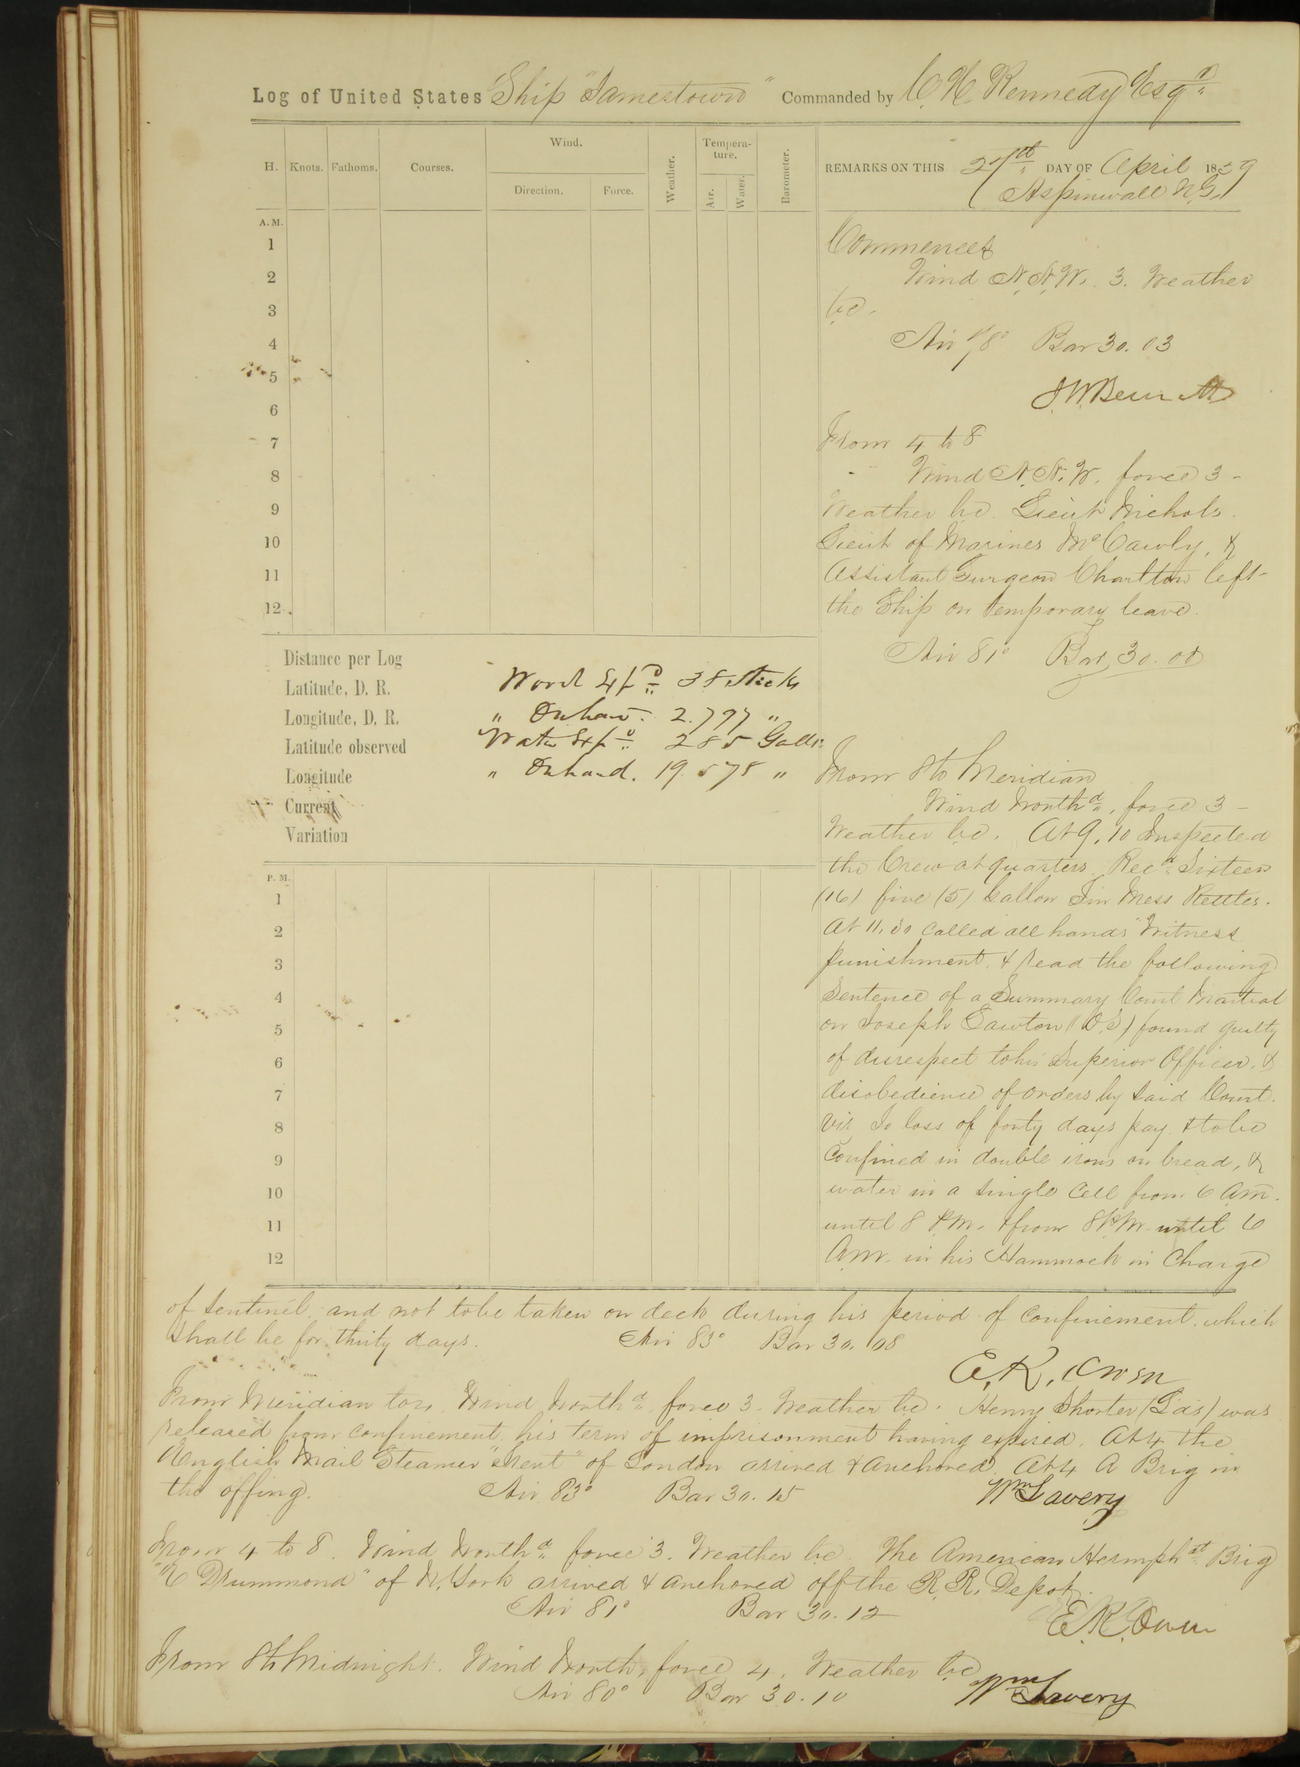 Log of United States Ship "Jamestown" Commanded by C. H. Kennedy Esqr
H. Knots. Fathoms. Courses. Wind. Direction. Force. Weather. Tempera-ture. Air. Water. Barometer.
REMARKS ON THIS 27th DAY OF April 1859
Aspinwall N.G.
A. M.
1
2
3
4
5
6
7
8
9
10
11
12
Commences
Wind N.N.W. 3. Weather
bc.
Air 78° Bar 30.03
J.W. Bennett
From 4 to 8
Wind N.N.W. force 3 -
Weather bc. Lieut Nichols.
Lieut of Marines McCawly, &
Assistant Surgeon Charlton left
the Ship on temporary leave.
Air 81° Bar 30.00
Distance per Log
Latitude, D. R.
Longitude, D. R.
Latitude observed
Longitude
Current
Variation
Wood Expd 38 sticks
" Onhand. 2.797 "
Water Expd 285 Galls.
" Onhand. 19.578 "
From 8 to Meridian
Wind Northd, force 3 -
Weather bc. At 9.10 Inspected
the Crew at quarters. Recd Sixteen
(16) five (5) Gallon Tin Mess Kettles.
At 11.30 called all hands "Witness
punishment. & read the following
Sentence of a Summary Court Martial
on Joseph Lawton (O.S) found guilty
of disrespect to his Superior Officer, &
disobedience of orders by said Court.
Viz To loss of forty days pay & to be
Confined in double irons on bread, &
water in a single Cell from 6 am.
until 8 P.M. & from 8 P.M. until 6
A.M. in his Hammock in Charge
P. M.
1
2
3
4
5
6
7
8
9
10
11
12
of Sentinel and not to be taken on deck during his period of confinement. which
shall be for thirty days. Air 83° Bar 30.08
E.K. Owen
From Meridian to 4. Wind Northd force 3 - Weather bc. Henry Shorter (Lds) was
released from confinement his term of imprisonment having expired. At 4 the
English Mail Steamer "Trent" of London arrived & Anchored. At 4 A Brig in
the offing. Air 83° Bar 30.15 Wm Lavery
From 4 to 8. Wind Northd force 3. Weather bc. The American Hermphdt Brig
"E Drummond" of N. York arrived & anchored off the R.R. Depot.
Air 81° Bar 30.12
E.K. Owen
From 8 to Midnight. Wind North, force 4. Weather bc
Air 80° Bar 30.10 Wm Lavery